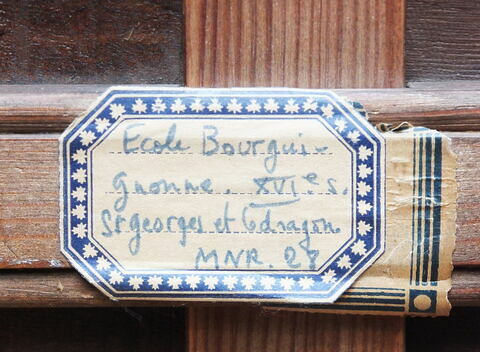 Ecole Bourgui-
gnonne. XVIe s.
St georges et le dragon.
MNR. 27